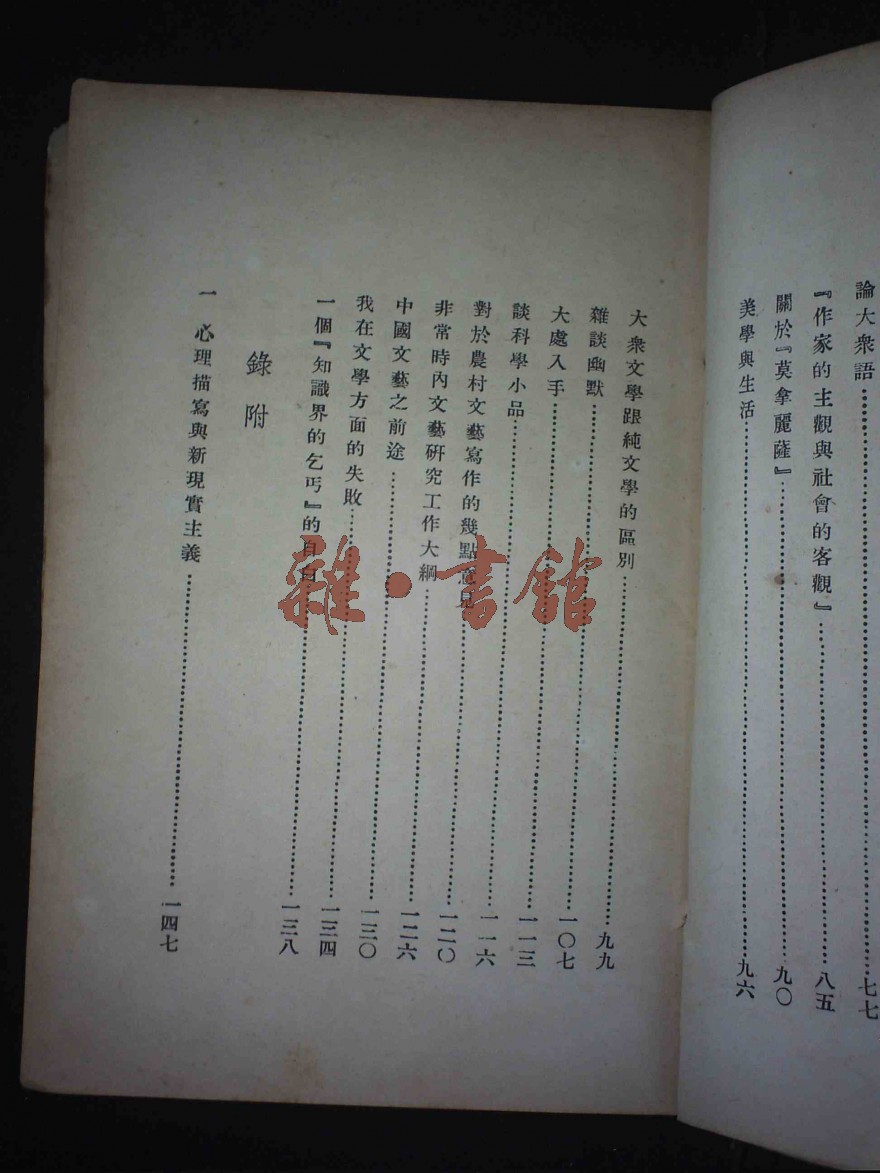 論大衆語……七七
『作家的主觀與社會的客觀』……八五
關於『莫拿麗薩』……九〇
美學與生活……九六
大衆文學跟純文學的區別……九九
雜談幽默……一〇七
大處入手……一一三
談科學小品……一一六
對於農村文藝寫作的幾點意見……一二〇
非常時內文藝研究工作大綱……一二六
中國文藝之前途……一三〇
我在文學方面的失敗……一三四
一個『知識界的乞丐』的自白……一三八
錄附
一 心理描寫與新現實主義……一四七
雜·書館